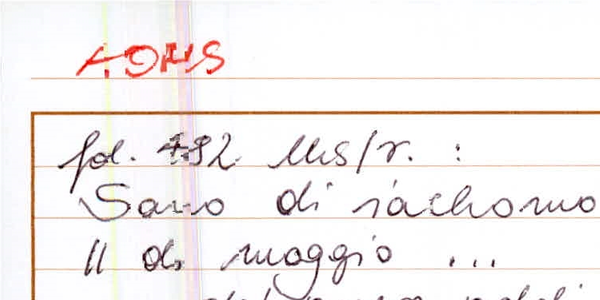 ADMS
fol. 492 Ms/r. :
Sano di iachomo
11 di maggio ...